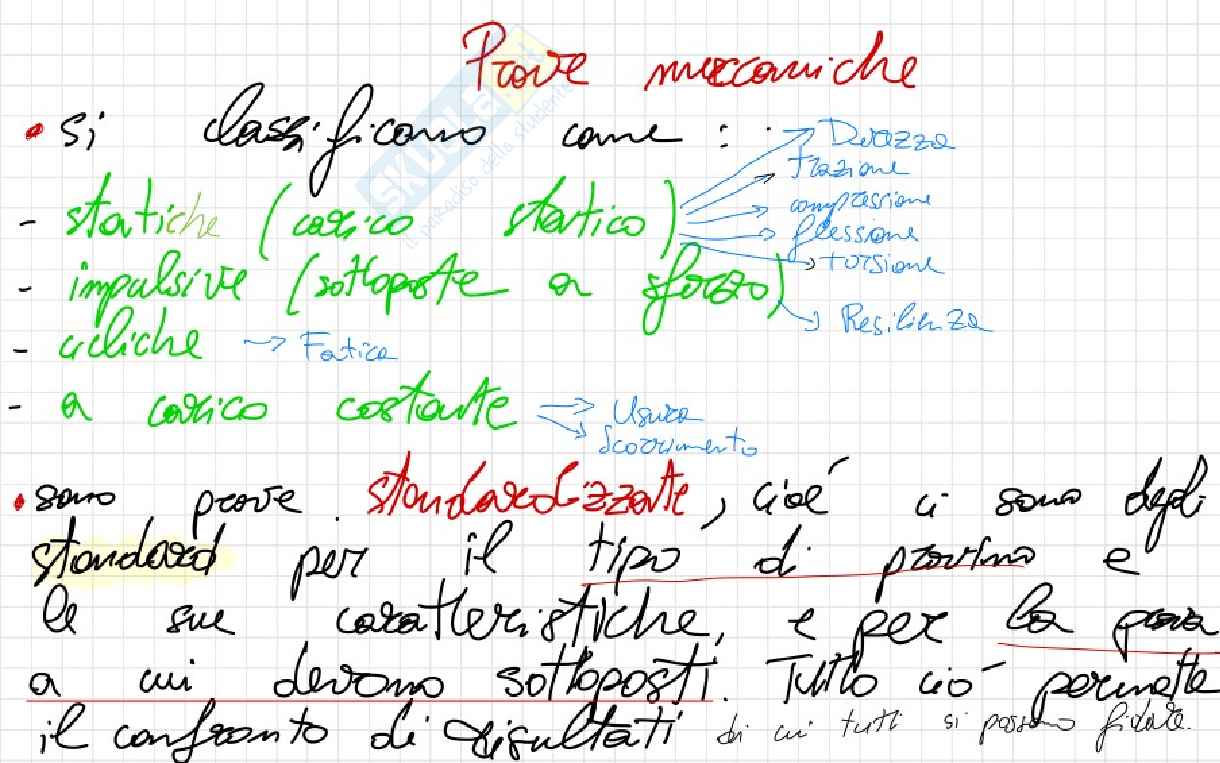 Prove meccaniche
• si classificano come :
- statiche (carico statico) → Durezza
→ trazione
→ compressione
→ flessione
→ torsione
- impulsive (sottoposte a sforzo) → Resilienza
- cicliche → Fatica
- a carico costante → Usura
→ Scorrimento
• sono prove standardizzate, cioé ci sono degli
standard per il tipo di provino e
le sue caratteristiche, e per la prova
a cui devono sottoposti. Tutto ció permette
il confronto di risultati di cui tutti si possono fidare.
SKUOLA.net
il paradiso dello studente